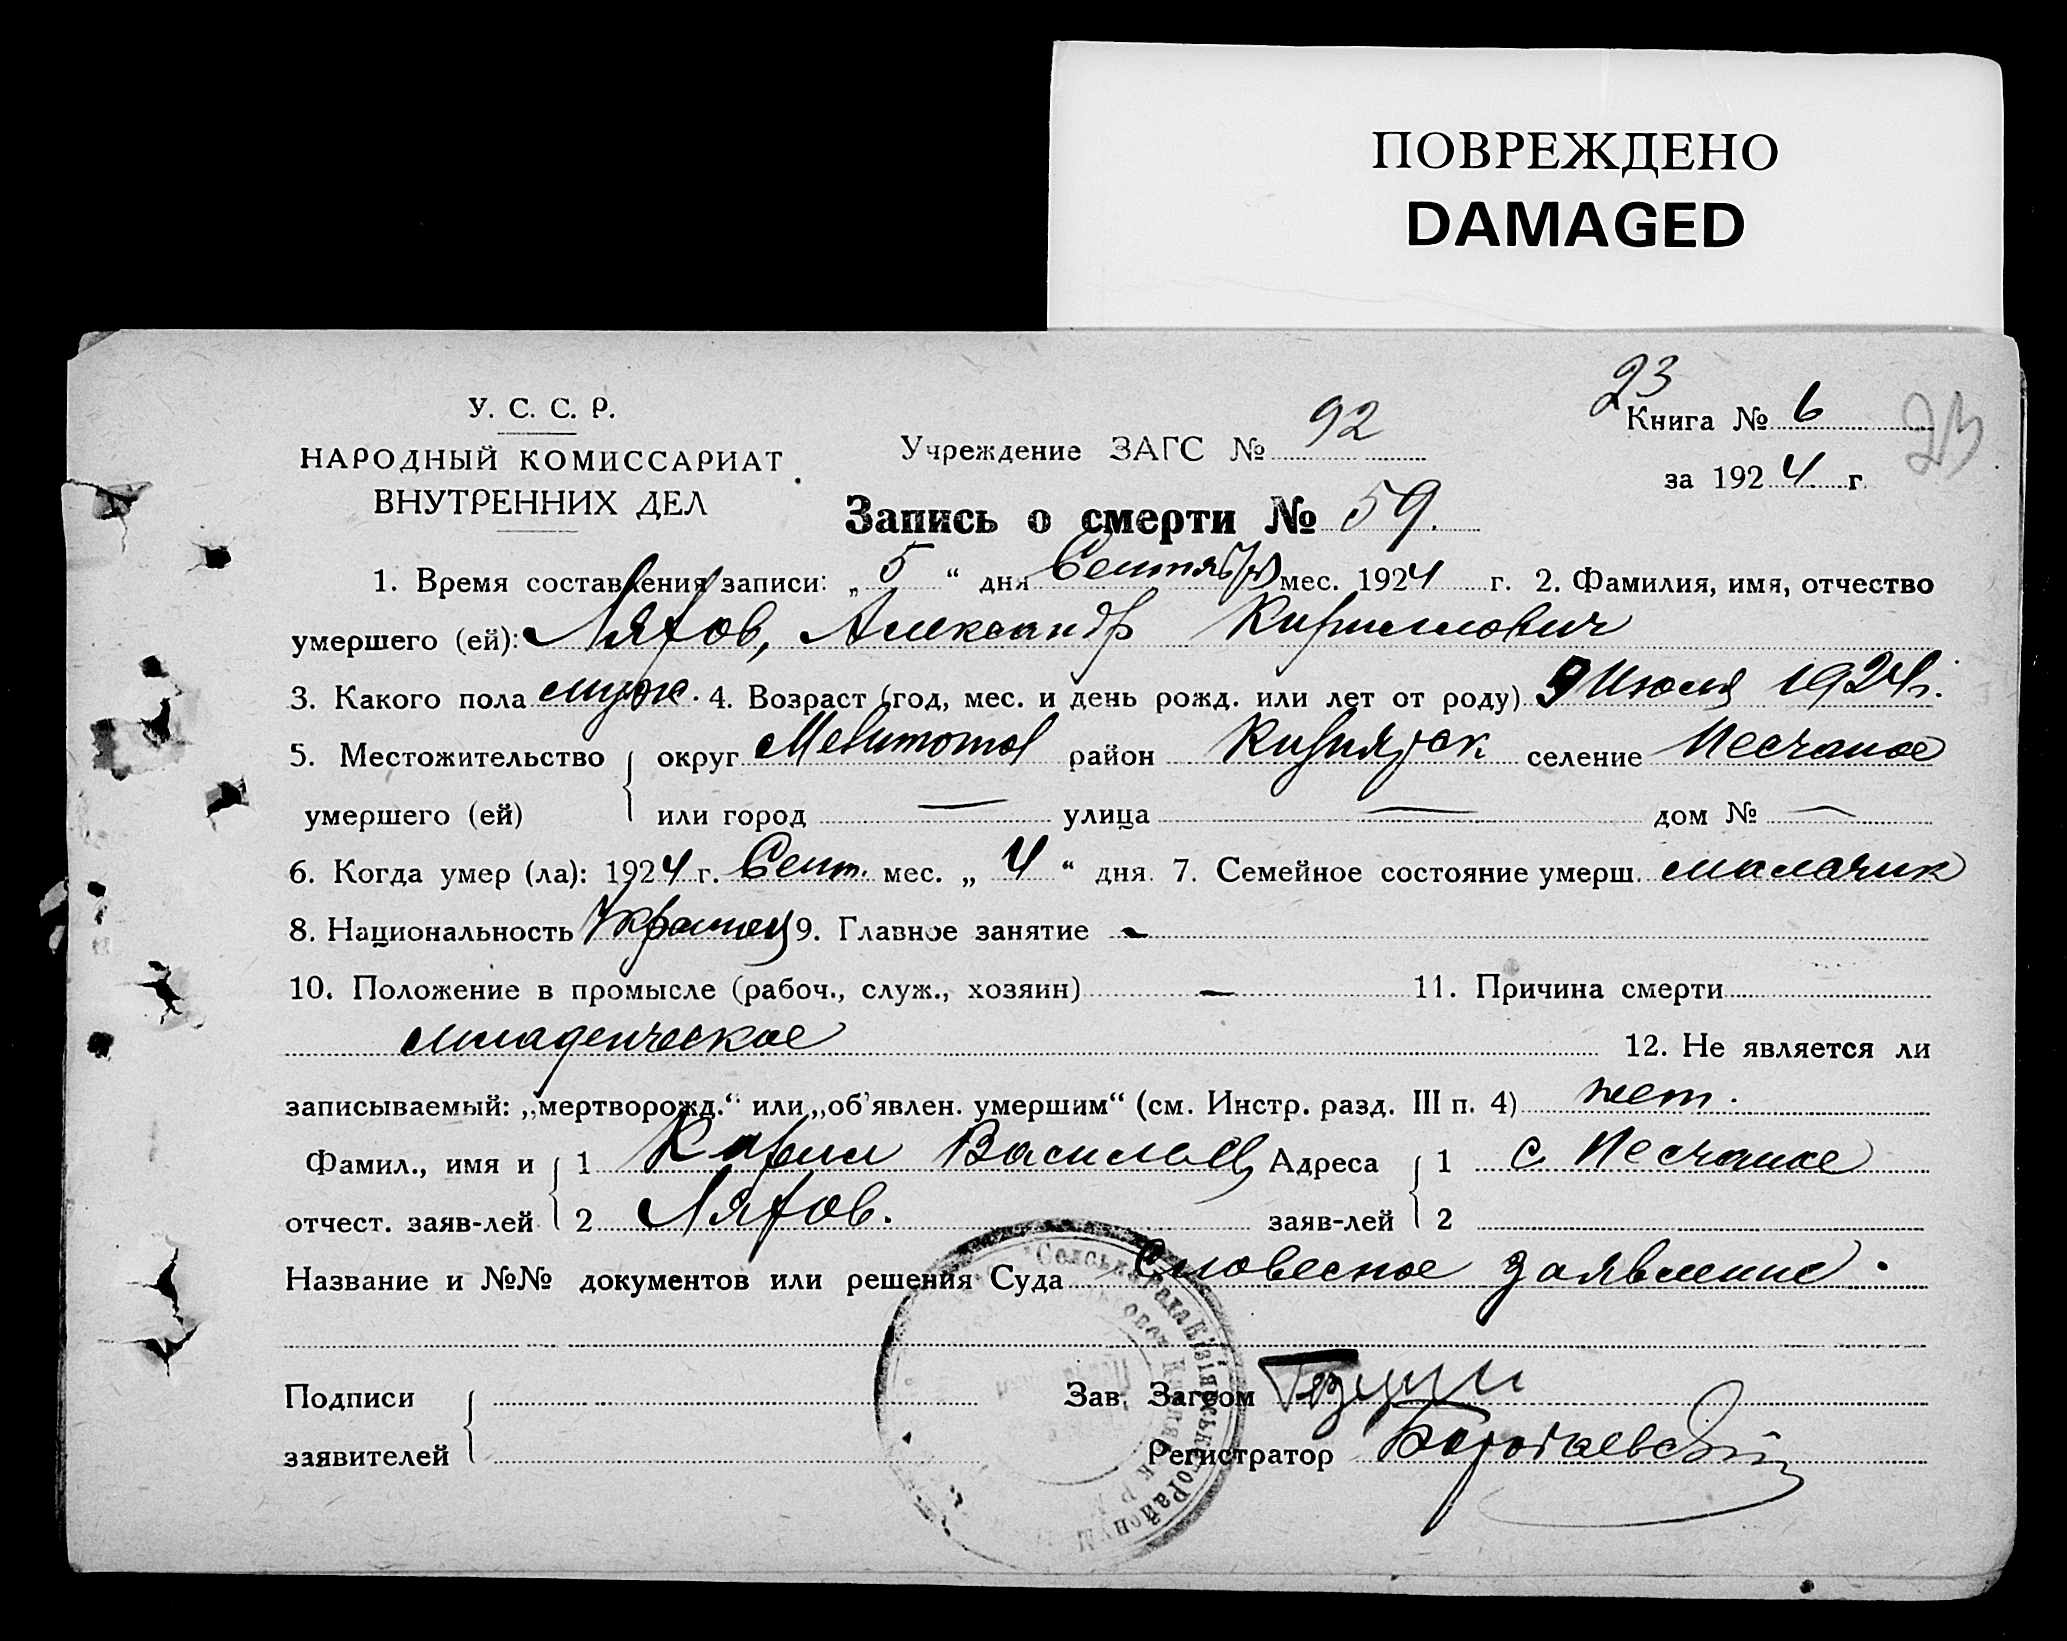 ПОВРЕЖДЕНО
DAMAGED
23
У. С. С. Р.
НАРОДНЫЙ КОМИССАРИАТ
ВНУТРЕННИХ ДЕЛ
Учреждение ЗАГС № 92
Книга № 6
23
за 1924 г.
Запись о смерти № 59.
1. Время составления записи: „5“ дня Сентяб мес. 1924 г. 2. Фамилия, имя, отчество
умершего (ей): Ляхов, Александр Кириллович
3. Какого пола муж. 4. Возраст (год, мес. и день рожд. или лет от роду) 9 Июля 1924 г.
5. Местожительство округ Мелитопол район селение Песчаное
умершего (ей) или город — улица — дом № —
6. Когда умер (ла): 1924 г. Сент. мес. „4“ дня. 7. Семейное состояние умерш.
8. Национальность 9. Главное занятие -
10. Положение в промысле (рабоч., служ., хозяин) - 11. Причина смерти
младенческое
12. Не является ли
записываемый: „мертворожд.“ или „об’явлен. умершим“ (см. Инстр. разд. III п. 4) нет.
Фамил., имя и 1 Кирил Адреса 1 с. Песчаное
отчест. заяв-лей 2 Ляхов. заяв-лей 2
Название и №№ документов или решения Суда Словесное заявление.
Подписи Зав. Загсом
заявителей Регистратор